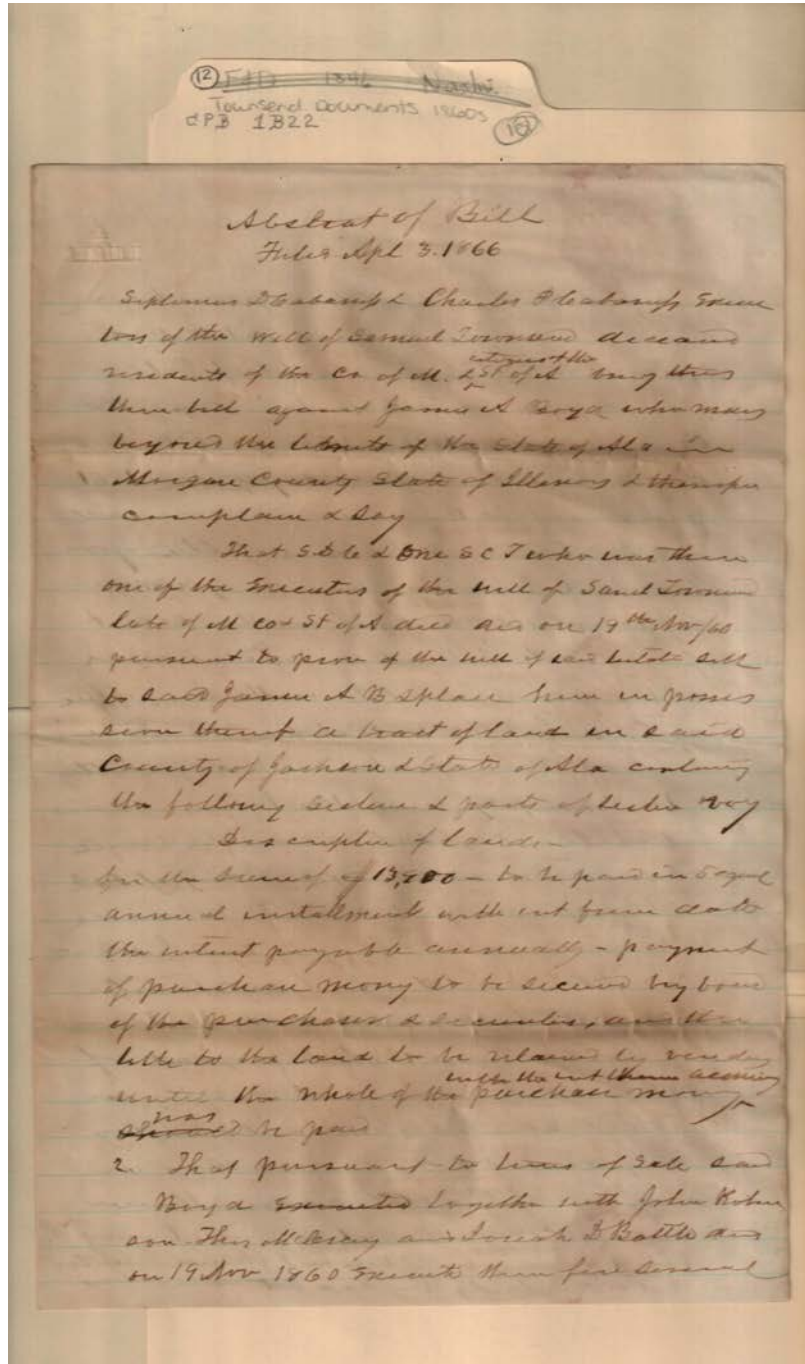 12
Townsend Documents 1860s
CPB 1B22
12
Abstract of Bill
Filed Apl 3. 1866
Septimus D Cabaniss & Charles Cabaniss Execu
tors of the will of Samuel Townsend deceased
residents of the Co of M. & St of A bring this
citizens of the
their bill against James A Boyd who resides
beyond the limits of the State of Ala in
Morgan County State of Illinois & thereupon
complain & Say
That S D C & One S C T who was then
one of the Executors of the will of Saml Townsend
late of M Co & St of A decd did on 19th Nov/60
pursuant to provn of the will of said testator sell
to said James A B & place him in posses
sion thereof a tract of land in said
County of Jackson & State of Ala
the following Sections & parts of Section
Description of lands
for the sum of to be paid in 5 equal
annual instalments with int from date
the interest payable annually - payment
of purchase money to be secured by bond
of the purchaser & securities, and the
title to the land to be retained by vendor
until the whole of the purchase money
with the int accruing
was
be paid
2. That pursuant to terms of Sale said
Boyd executed together with John Robin
son and Josiah D Battle did
on 19 Nov 1860 Execute their five several